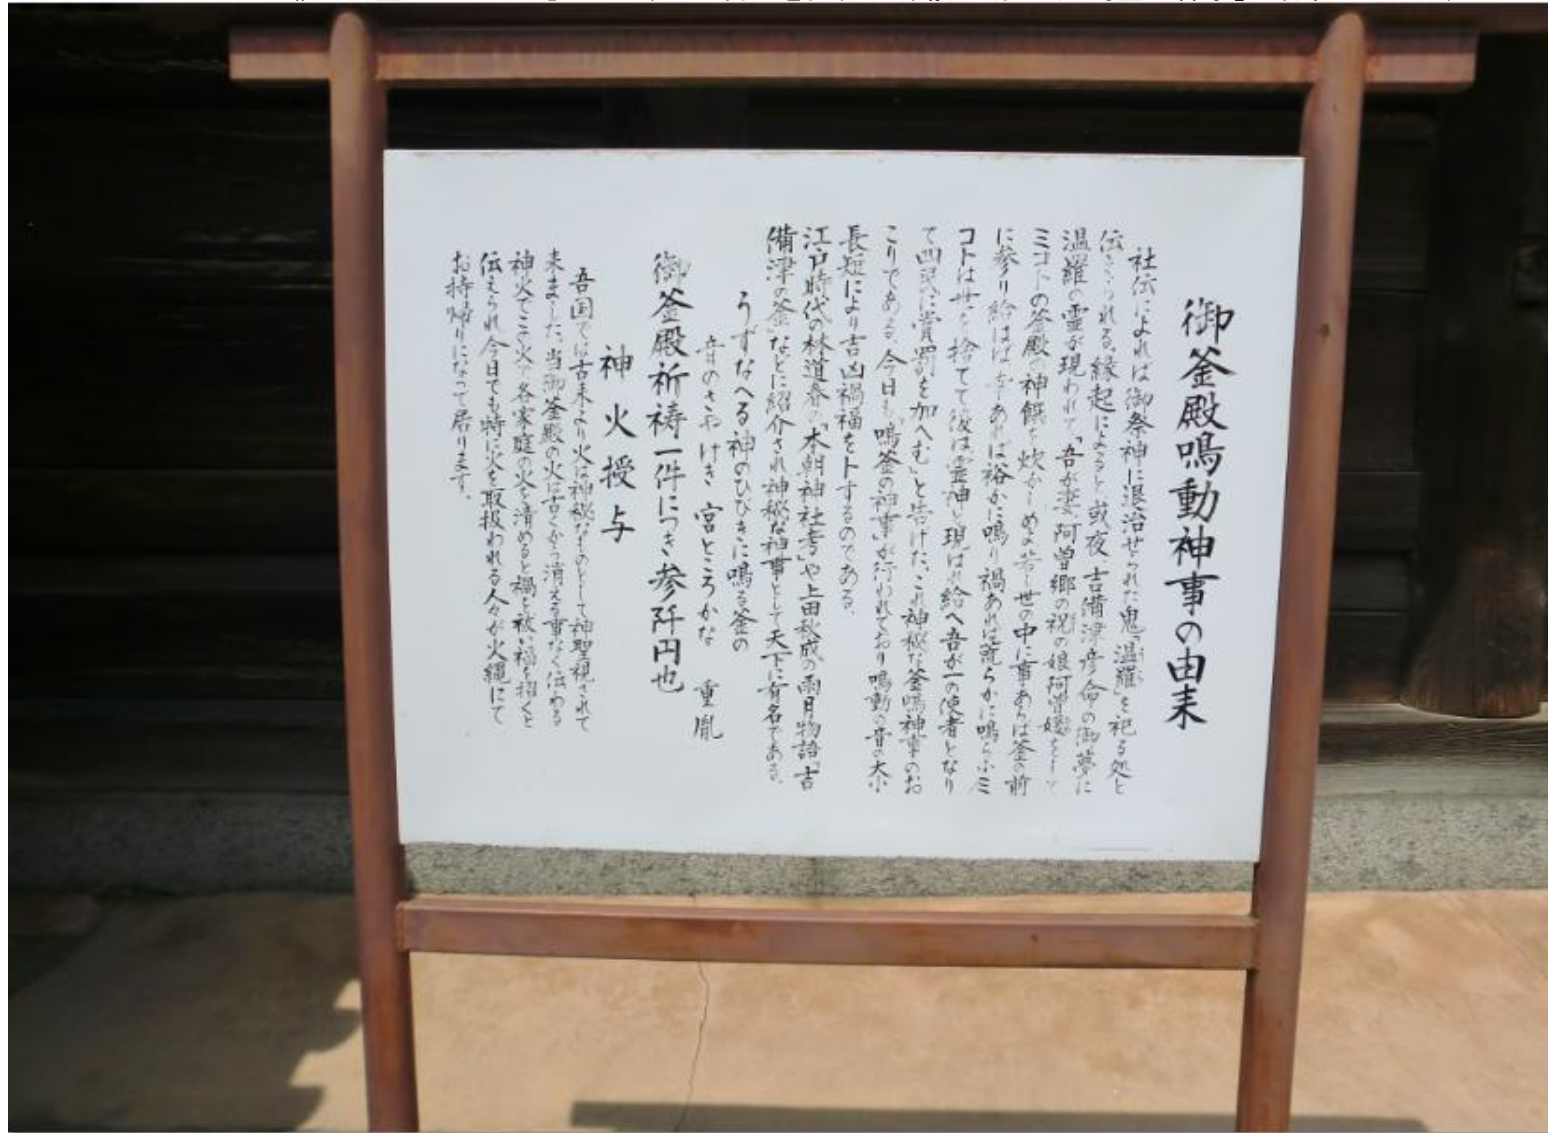 御釜殿鳴動神事の由来
社伝によれば御祭神に退治せられた鬼「温羅」を祀る処と
伝えられる。縁起によると、或夜、吉備津彦命の御夢に
温羅の霊が現われて「吾が妻、阿曽郷の祝の娘阿曽媛をして
ミコトの釜殿の神饌を炊がしめよ若し世の中に事あらば釜の前
に参り給はば幸あれば裕かに鳴り禍あれば荒らかに鳴らふミ
コトは世を捨てて後は霊神と現はれ給へ吾が一の使者となり
て四民に賞罰を加へむ」と告げた。これ神秘な釜鳴神事のお
こりである。今日も「鳴釜の神事」が行われており鳴動の音の大小
長短により吉凶禍福を卜するのである。
江戸時代の林道春の「本朝神社考」や上田秋成の雨月物語「吉
備津の釜」などに紹介され神秘な神事として天下に有名である。
うずなへる神のひびきに鳴る釜の
音のさやけき 宮ところかな 重胤
御釜殿祈祷一件につき参阡円也
神火授与
吾国では古来より火は神秘なものとして神聖視されて
来ました。当御釜殿の火は古くから消える事なく伝わる
神火でこの火で各家庭の火を清めると禍を祓い福を招くと
伝えられ今日でも特に火を取扱われる人々が火縄にて
お持帰りになって居ります。